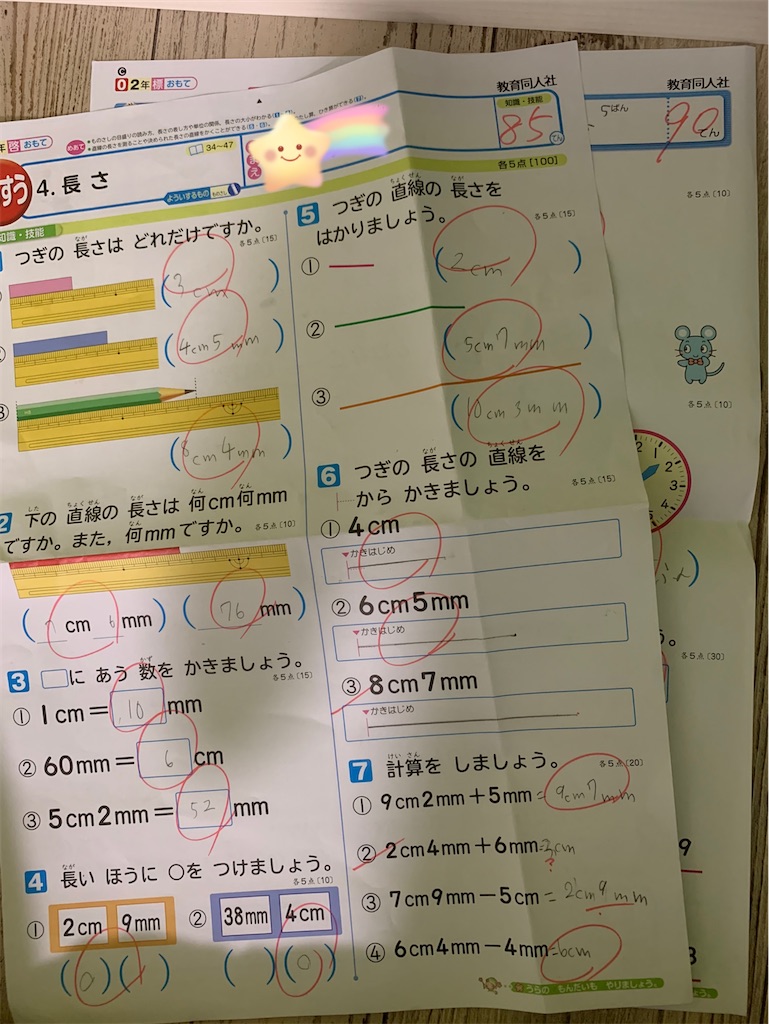 02年 標 おもて
教育同人社
5ばん
90
てん
各5点(10)
各5点(10)
各5点(30)
年 啓 おもて
めあて
34~47
教育同人社
知識・技能
85
てん
各5点[100]
すう
4. 長さ
よういするもの ものさし
知識・技能
つぎの 長さは どれだけですか。
各5点(15)
(3cm)
(4cm5mm)
(8cm4mm)
2 下の 直線の 長さは 何cm何mm
ですか。また, 何mmですか。
各5点(10)
(7 cm 6 mm) (76 mm)
3 □に あう 数を かきましょう。
各5点(15)
① 1cm=10mm
② 60mm=6cm
③ 5cm2mm=52mm
4 長い ほうに ○を つけましょう。
各5点(10)
① 2cm 9mm ② 38mm 4cm
(○)( ) ( )(○)
5 つぎの 直線の 長さを
はかりましょう。
各5点(15)
① (2cm)
② (5cm7mm)
③ (10cm3mm)
6 つぎの 長さの 直線を
から かきましょう。
各5点(15)
① 4cm
かきはじめ
② 6cm5mm
かきはじめ
③ 8cm7mm
かきはじめ
7 計算を しましょう。
各5点(20)
① 9cm2mm+5mm=9cm7mm
② 2cm4mm+6mm=3cm
?
③ 7cm9mm-5cm=2cm9mm
④ 6cm4mm-4mm=6cm
うらの もんだいも やりましょう。